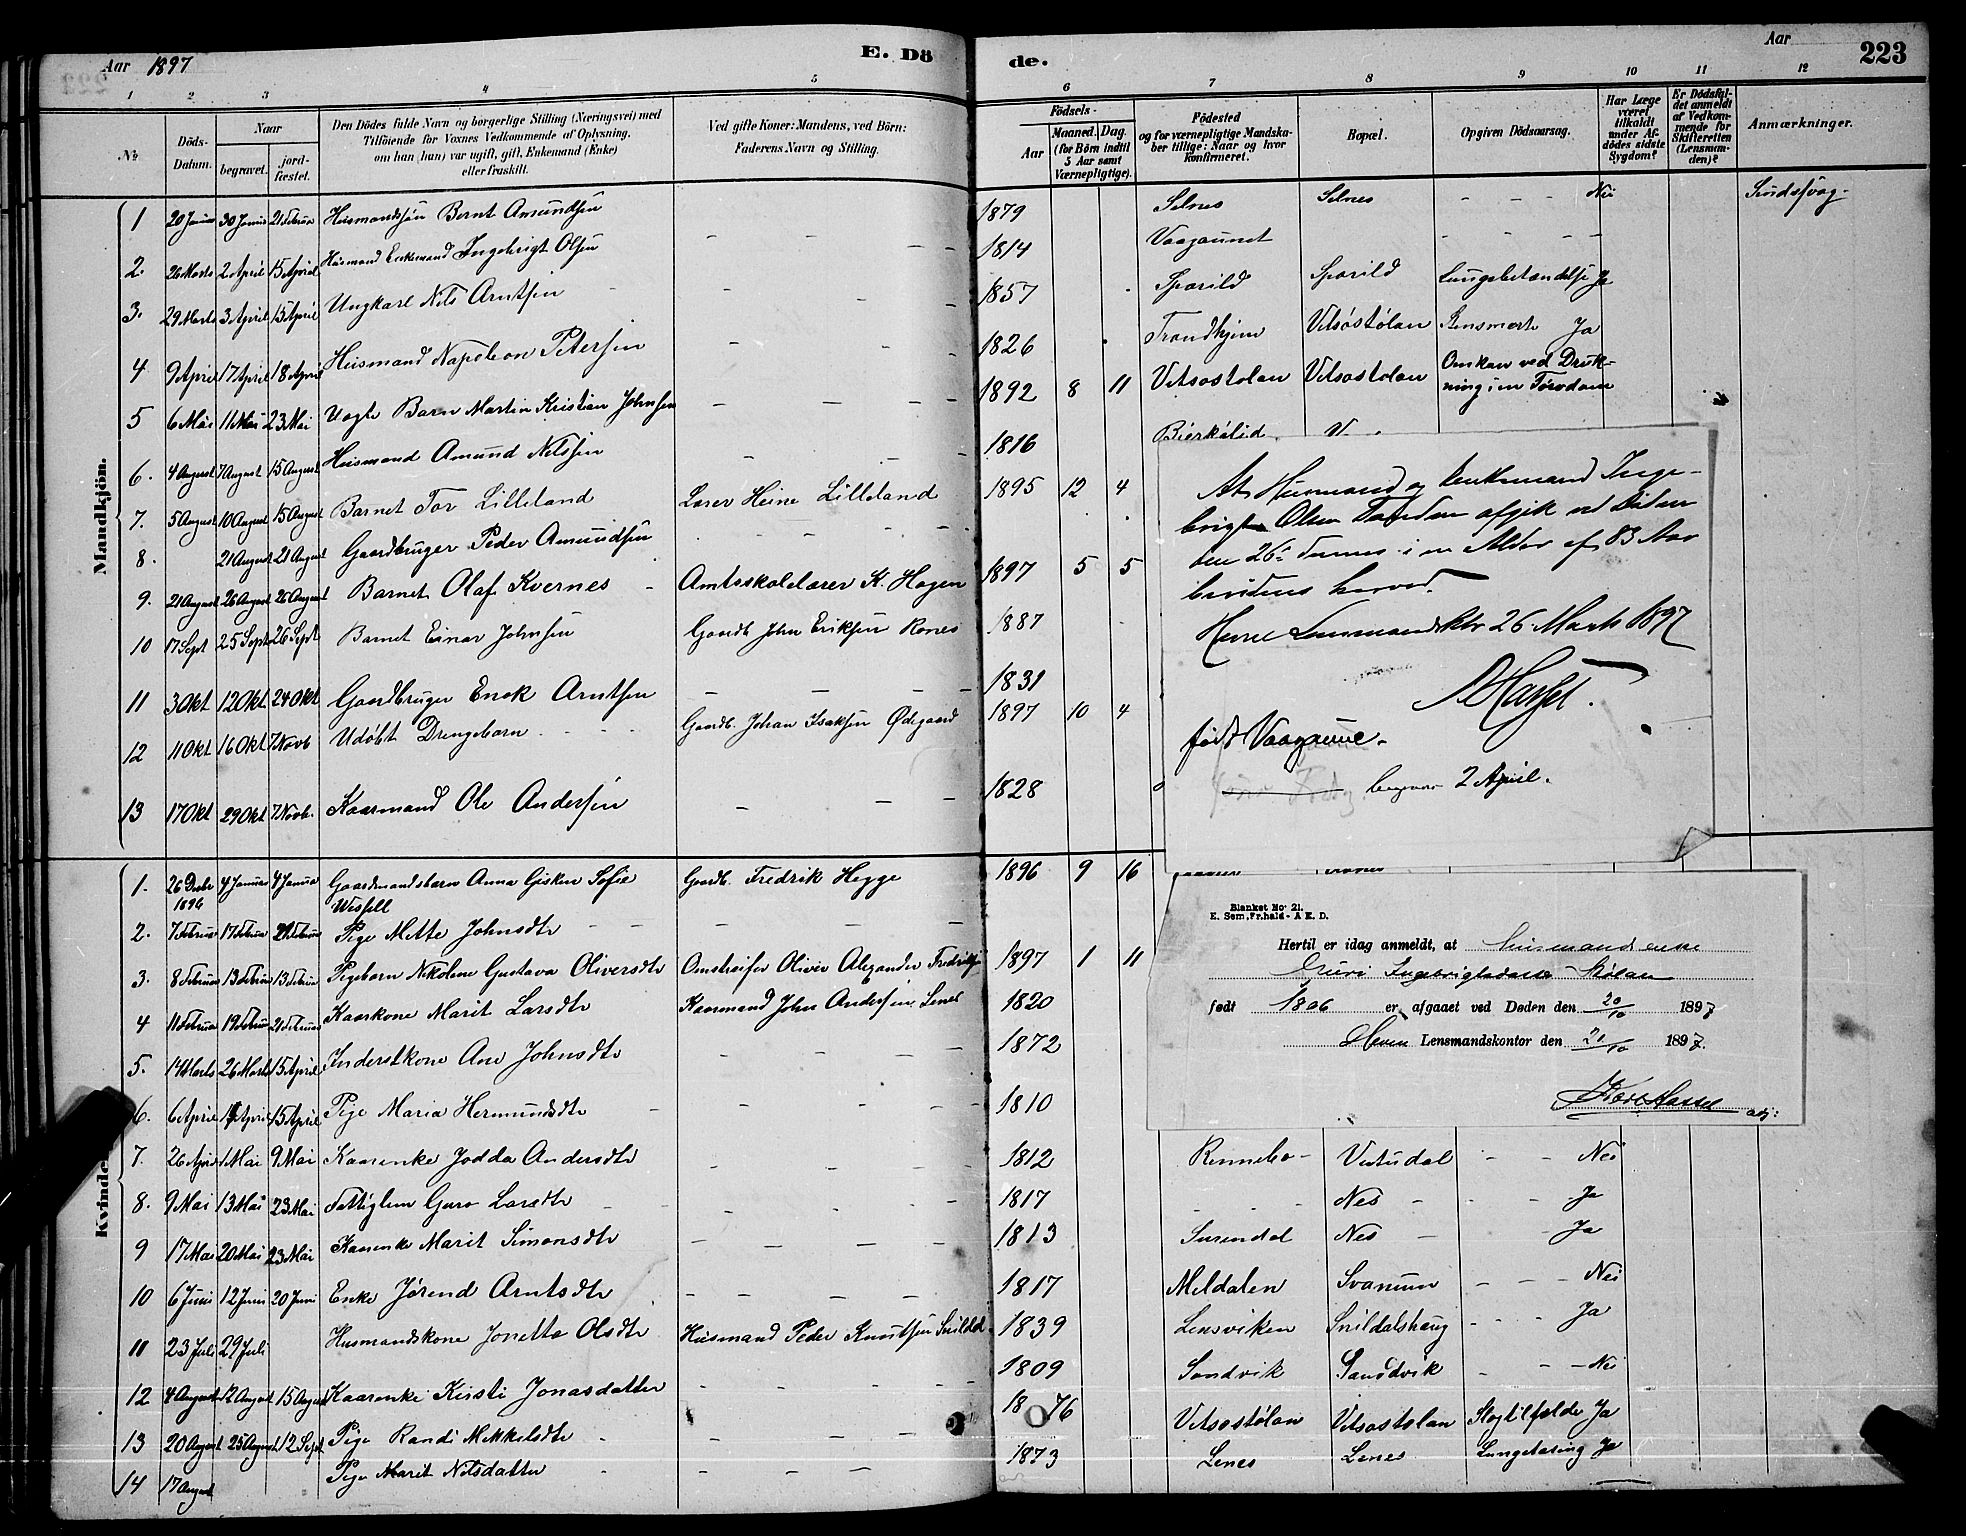 Aar 1897
E. Dö
de.
Aar
223
1 2 3 4 5 6 7 8 9 10 11 12
№
Döds-Datum.
Naar
begravet.
jord-fæstet.
Den Dödes fulde Navn og borgerlige Stilling (Næringsvei) med
Tilföiende for Voxnes Vedkommende af Oplysning,
om han (hun) var ugift, gift, Enkemand (Enke)
eller fraskilt.
Ved gifte Koner: Mandens, ved Börn:
Faderens Navn og Stilling.
Födsels-
Aar
Maaned. Dag.
(for Börn indtil
5 Aar samt
Værnepligtige).
Födested
og for værnepligtige Mandska-
ber tillige: Naar og hvor
konfirmeret.
Bopæl.
Opgiven Dödsaarsag.
Har Læge
været
tilkaldt
under Af-
dödes sidste
Sygdom?
Er Dödsfal-
det anmeldt
af Vedkom-
mende for
Skifteretten
(Lensman-
den)?
Anmærkninger.
Mandkjön.
1 20 Januar 30 Januar 21 Februar Husmandssøn Bernt Amundsen 1879 Selnes Selnes - - - Nei Sindssvag -
2. 26 Marts 2 April 15 April Husmand Enkemand Ingebrigt Olsen 1814 Vaagaunet
3. 29 Marts 3 April 15 April Ungkarl Nils Arntsen 1857 Sparild Sparild Lungebetændelse Ja
4 9 April 17 April 18 April Husmand Napoleon Petersen 1826 Trondhjem Vitsøstølan Ja
5 6 Mai 11 Mai 23 Mai Uægte Barn Martin Kristian Johnsen 1892 8 11 Vitsøstølan Vitsøstølan Omkom ved Druk-
ning i en Torvdam
6. 4 August 7 August 15 August Husmand Amund Nilssen 1816
7. 5 August 10 August 15 August Barnet Tor Lilleland Lærer Heine Lilleland 1895 12 4
8. 21 August 21 August Gaardbruger Peder Amundsen
9. 21 August 26 August 26 August Barnet Olaf Kvernes Amtsskolelærer K. Hagen 1897 5 5
10 17 Sept 25 Sept 26 Sept Barnet Einar Johnsen Gaardb John Eriksen Rones 1887
11 3 Okt 12 Okt 24 Okt Gaardbruger Enok Arntsen 1831
12 11 Okt 16 Okt 7 Novb Udøbt Drengebarn Gaardb. Johan Isaksen Ødegaard 1897 10 4
13 17 Okt 29 Okt 7 Novb. Kaarmand Ole Andersen 1828
At Husmand og Enkemand Inge-
brigt Olsen afgik ved Døden
den 26de i en Alder af 83 Aar
bevidnes herved.
Hevne Lensmandsktr 26 Marts 1897
Hassel.
født Vaagaune.
begravet 2 April.
Kvinde
1. 26 Decbr 1896 4 Januar 4 Januar Gaardmandsbarn Anna Gisken Sofie
Wessell Gaardb. Fredrik Hegge 1896 9 16
2. 7 Februar 17 Februar 21 Februar Pige Mette Johnsdtr
3. 8 Februar 13 Februar 13 Februar Pigebarn Nikoline Gustava Oliversdtr Omstreifer Oliver Alexander Fredriksen 1897 1 11
4 11 Februar 19 Februar 21 Februar Kaarkone Marit Larsdtr Kaarmand John Andersen Lenes 1820
5. 14 Marts 26 Marts 15 April Inderstkone Ane Johnsdtr 1872
6. 6 April 14 April 15 April Pige Maria Hermundsdtr 1810
7. 26 April 1 Mai 9 Mai Kaarenke Jodda Andersdtr 1812 Rennebo - Vestudal - - Nei
8. 9 Mai 13 Mai 23 Mai Fattiglem Guro Larsdtr 1817 Nes - - Ja
9 17 Mai 20 Mai 23 Mai Kaarenke Marit Simonsdtr 1813 Surendal Nes - - Ja
10 6 Juni 12 Juni 20 Juni Enke Jørend Arntsdtr 1817 Meldalen Svanum - - - Nei
11 23 Juli 29 Juli Husmandskone Jonetta Olsdtr Husmand Peder Knutsen Snildal 1839 Lensviken Snildalshaug - - - Ja
12 4 August 12 August 15 August Kaarenke Kirsti Jonasdatter 1809 Sandvik Sandvik - - Nei
13 20 August 25 August 12 Sept Pige Randi Mikkelsdtr 1876 Vitsøstølan Vitsøstølan Slagtilfælde Ja
14 17 August Pige Marit Nilsdatter 1873 Lenes Lenes Lungetæring Ja
Blanket No. 21.
E. Sem, Fr.hald - A K. D.
Hertil er idag anmeldt, at Husmandsenke
Guri Ingebrigtsdatter Stølan
født 1806 er afgaaet ved Døden den 20/10 1897
Hevne Lensmandskontor den 21/10 1897.
Hassel